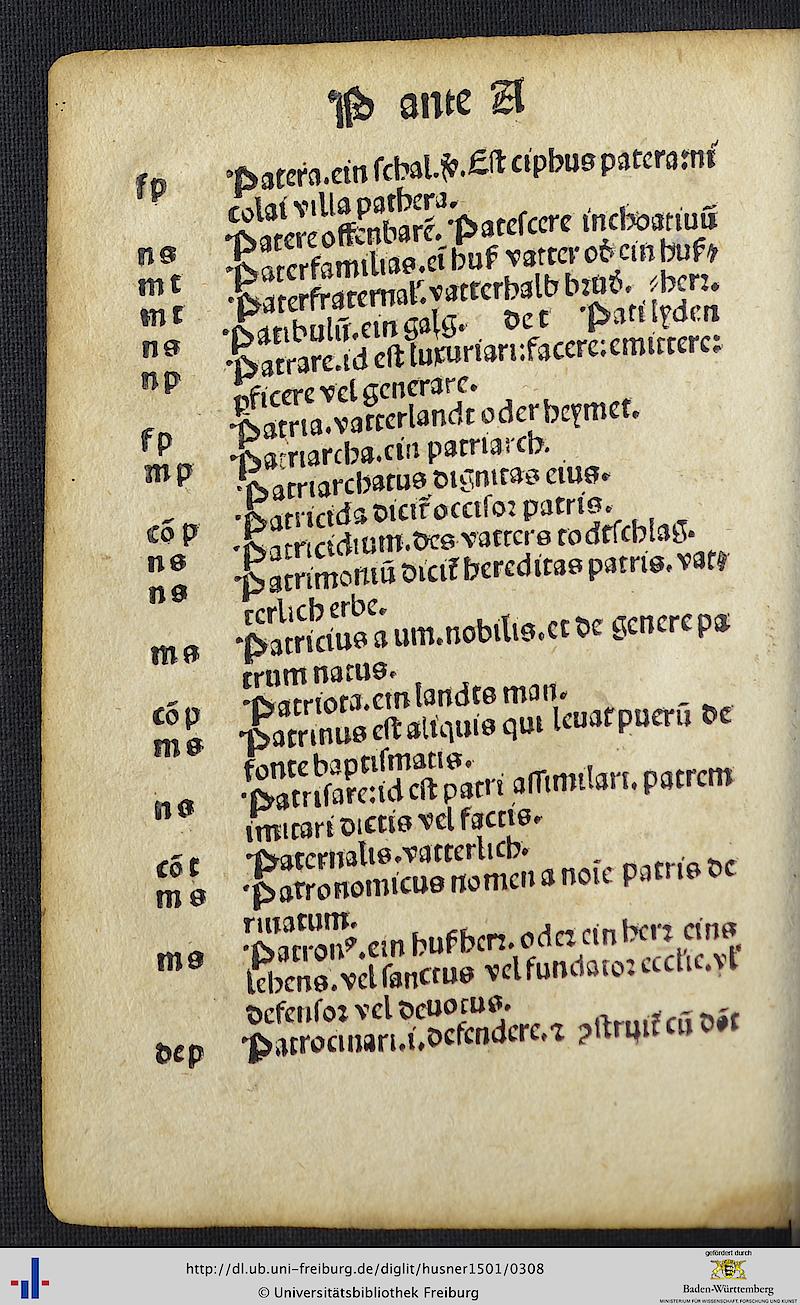 P ante A
fp Patera.ein schal.ꝟ.Est ciphus patera:ni
colai villa pathera.
Patere offenbarē. Patescere inchoatiuū
ns Paterfamilias.eī huß vatter oď ein huß⸗
mt Paterfraternal'.vatterhalb brůď. ⸗herr.
mt Patibulū.ein galg. det Pati lyden
ns Patrare.id est luxuriari:facere:emittere:
np ꝑficere vel generare.
Patria.vatterlandt oder heymet.
fp Patriarcha.ein patriarch.
mp Patriarchatus dignitas eius.
Patricida dicit̄ occisor patris.
cō p Patricidium.des vatters todtschlag.
ns Patrimoniū dicit̄ hereditas patris.vat⸗
ns terlich erbe.
Patricius a um.nobilis.et de genere pa
ms trum natus.
Patriota.ein landts man.
cō p Patrinus est aliquis qui leuat puerū de
ms fonte baptismatis.
Patrisare:id est patri assimilari.patrem
ns imitari dictis vel factis.
Paternalis.vatterlich.
cō t Patronomicus nomen a noīe patris de
ms riuatum.
Patronꝰ.ein hußherr.oder ein herr eins
ms lehens.vel sanctus vel fundator ecclie.vl'
defensor vel deuotus.
dep Patrocinari.i.defendere.⁊ ꝯstruit̄ cū dōt
http://dl.ub.uni-freiburg.de/diglit/husner1501/0308
© Universitätsbibliothek Freiburg
gefördert durch
Baden-Württemberg
MINISTERIUM FÜR WISSENSCHAFT, FORSCHUNG UND KUNST